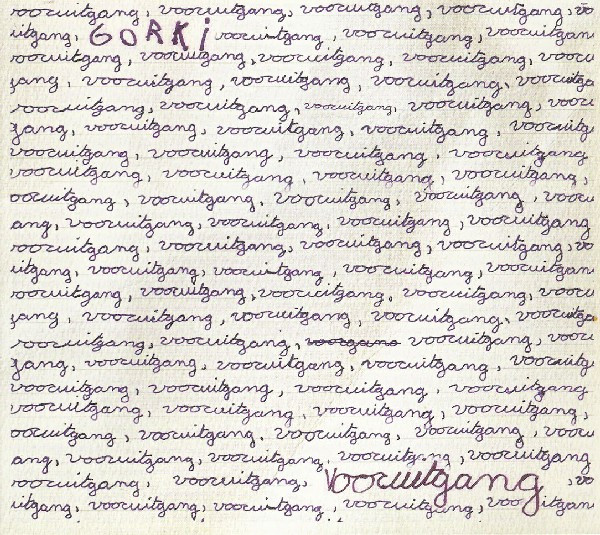 vooruitgang, vooruitgang, vooruitgang, vooruitgang, vo
uitgang, GORKI vooruitgang, vooruitgang, vooruitgan
vooruitgang, vooruitgang, vooruitgang, vooruitgang, vooru
gang, vooruitgang, vooruitgang, vooruitgang, vooruitga
vooruitgang, vooruitgang, vooruitgang, vooruitgang, vooru
gang, vooruitgang, vooruitgang, vooruitgang, vooruitg
vooruitgang, vooruitgang, vooruitgang, vooruitgang
vooruitgang, vooruitgang, vooruitgang, vooruitgang,
ooruitgang, vooruitgang, vooruitgang, vooruitgang, vooru
ang, vooruitgang, vooruitgang, vooruitgang, vooruitgang
vooruitgang, vooruitgang, vooruitgang, vooruitgang, vo
uitgang, vooruitgang, vooruitgang, vooruitgang, vooruitgan
vooruitgang, vooruitgang, vooruitgang, vooruitgang, vooru
gang, vooruitgang, vooruitgang, vooruitgang, vooruitga
vooruitgang, vooruitgang, vooruitgang, vooru
gang, vooruitgang, vooruitgang, vooruitgang, vooruitg
vooruitgang, vooruitgang, vooruitgang, vooruitgang
vooruitgang, vooruitgang, vooruitgang, vooruitgang,
ooruitgang, vooruitgang, vooruitgang, vooruitgang, vooru
ang, vooruitgang, vooruitgang, vooruitgang, vooruitgang
vooruitgang, vooruitgang, Vooruitgang, vo
uitgang, vooruitgang, vooruitgang, vooruitgang, vooruitgan